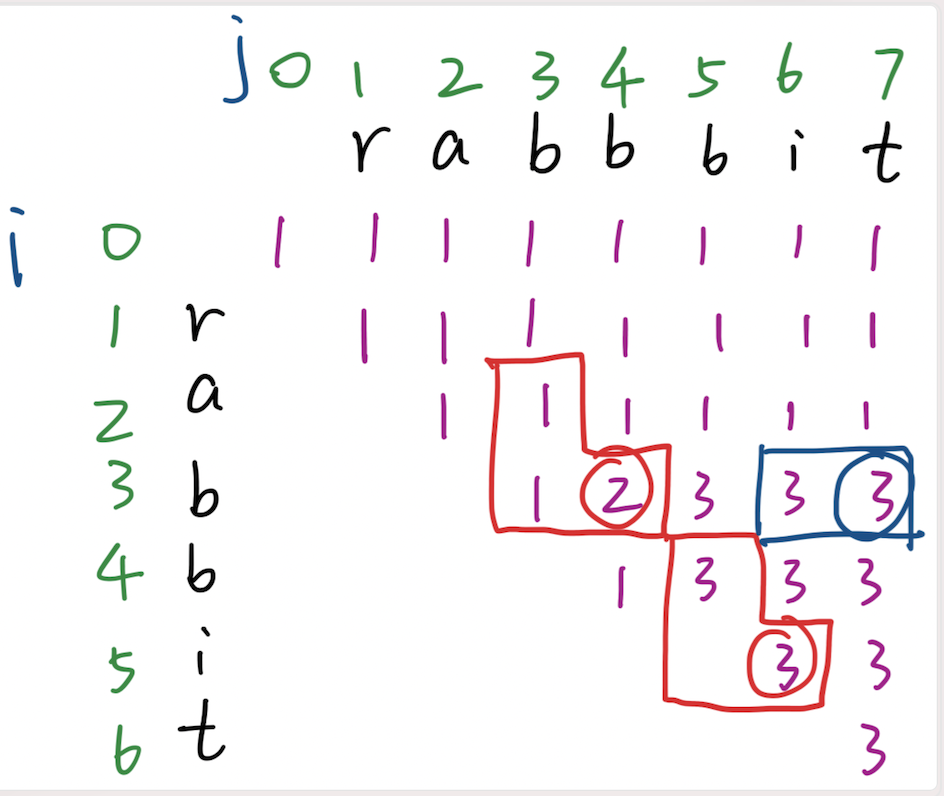 j 0 1 2 3 4 5 6 7
r a b b b i t
i 0 1 1 1 1 1 1 1 1
1 r 1 1 1 1 1 1 1
2 a 1 1 1 1 1 1
3 b 1 2 3 3 3
4 b 1 3 3 3
5 i 3 3
6 t 3